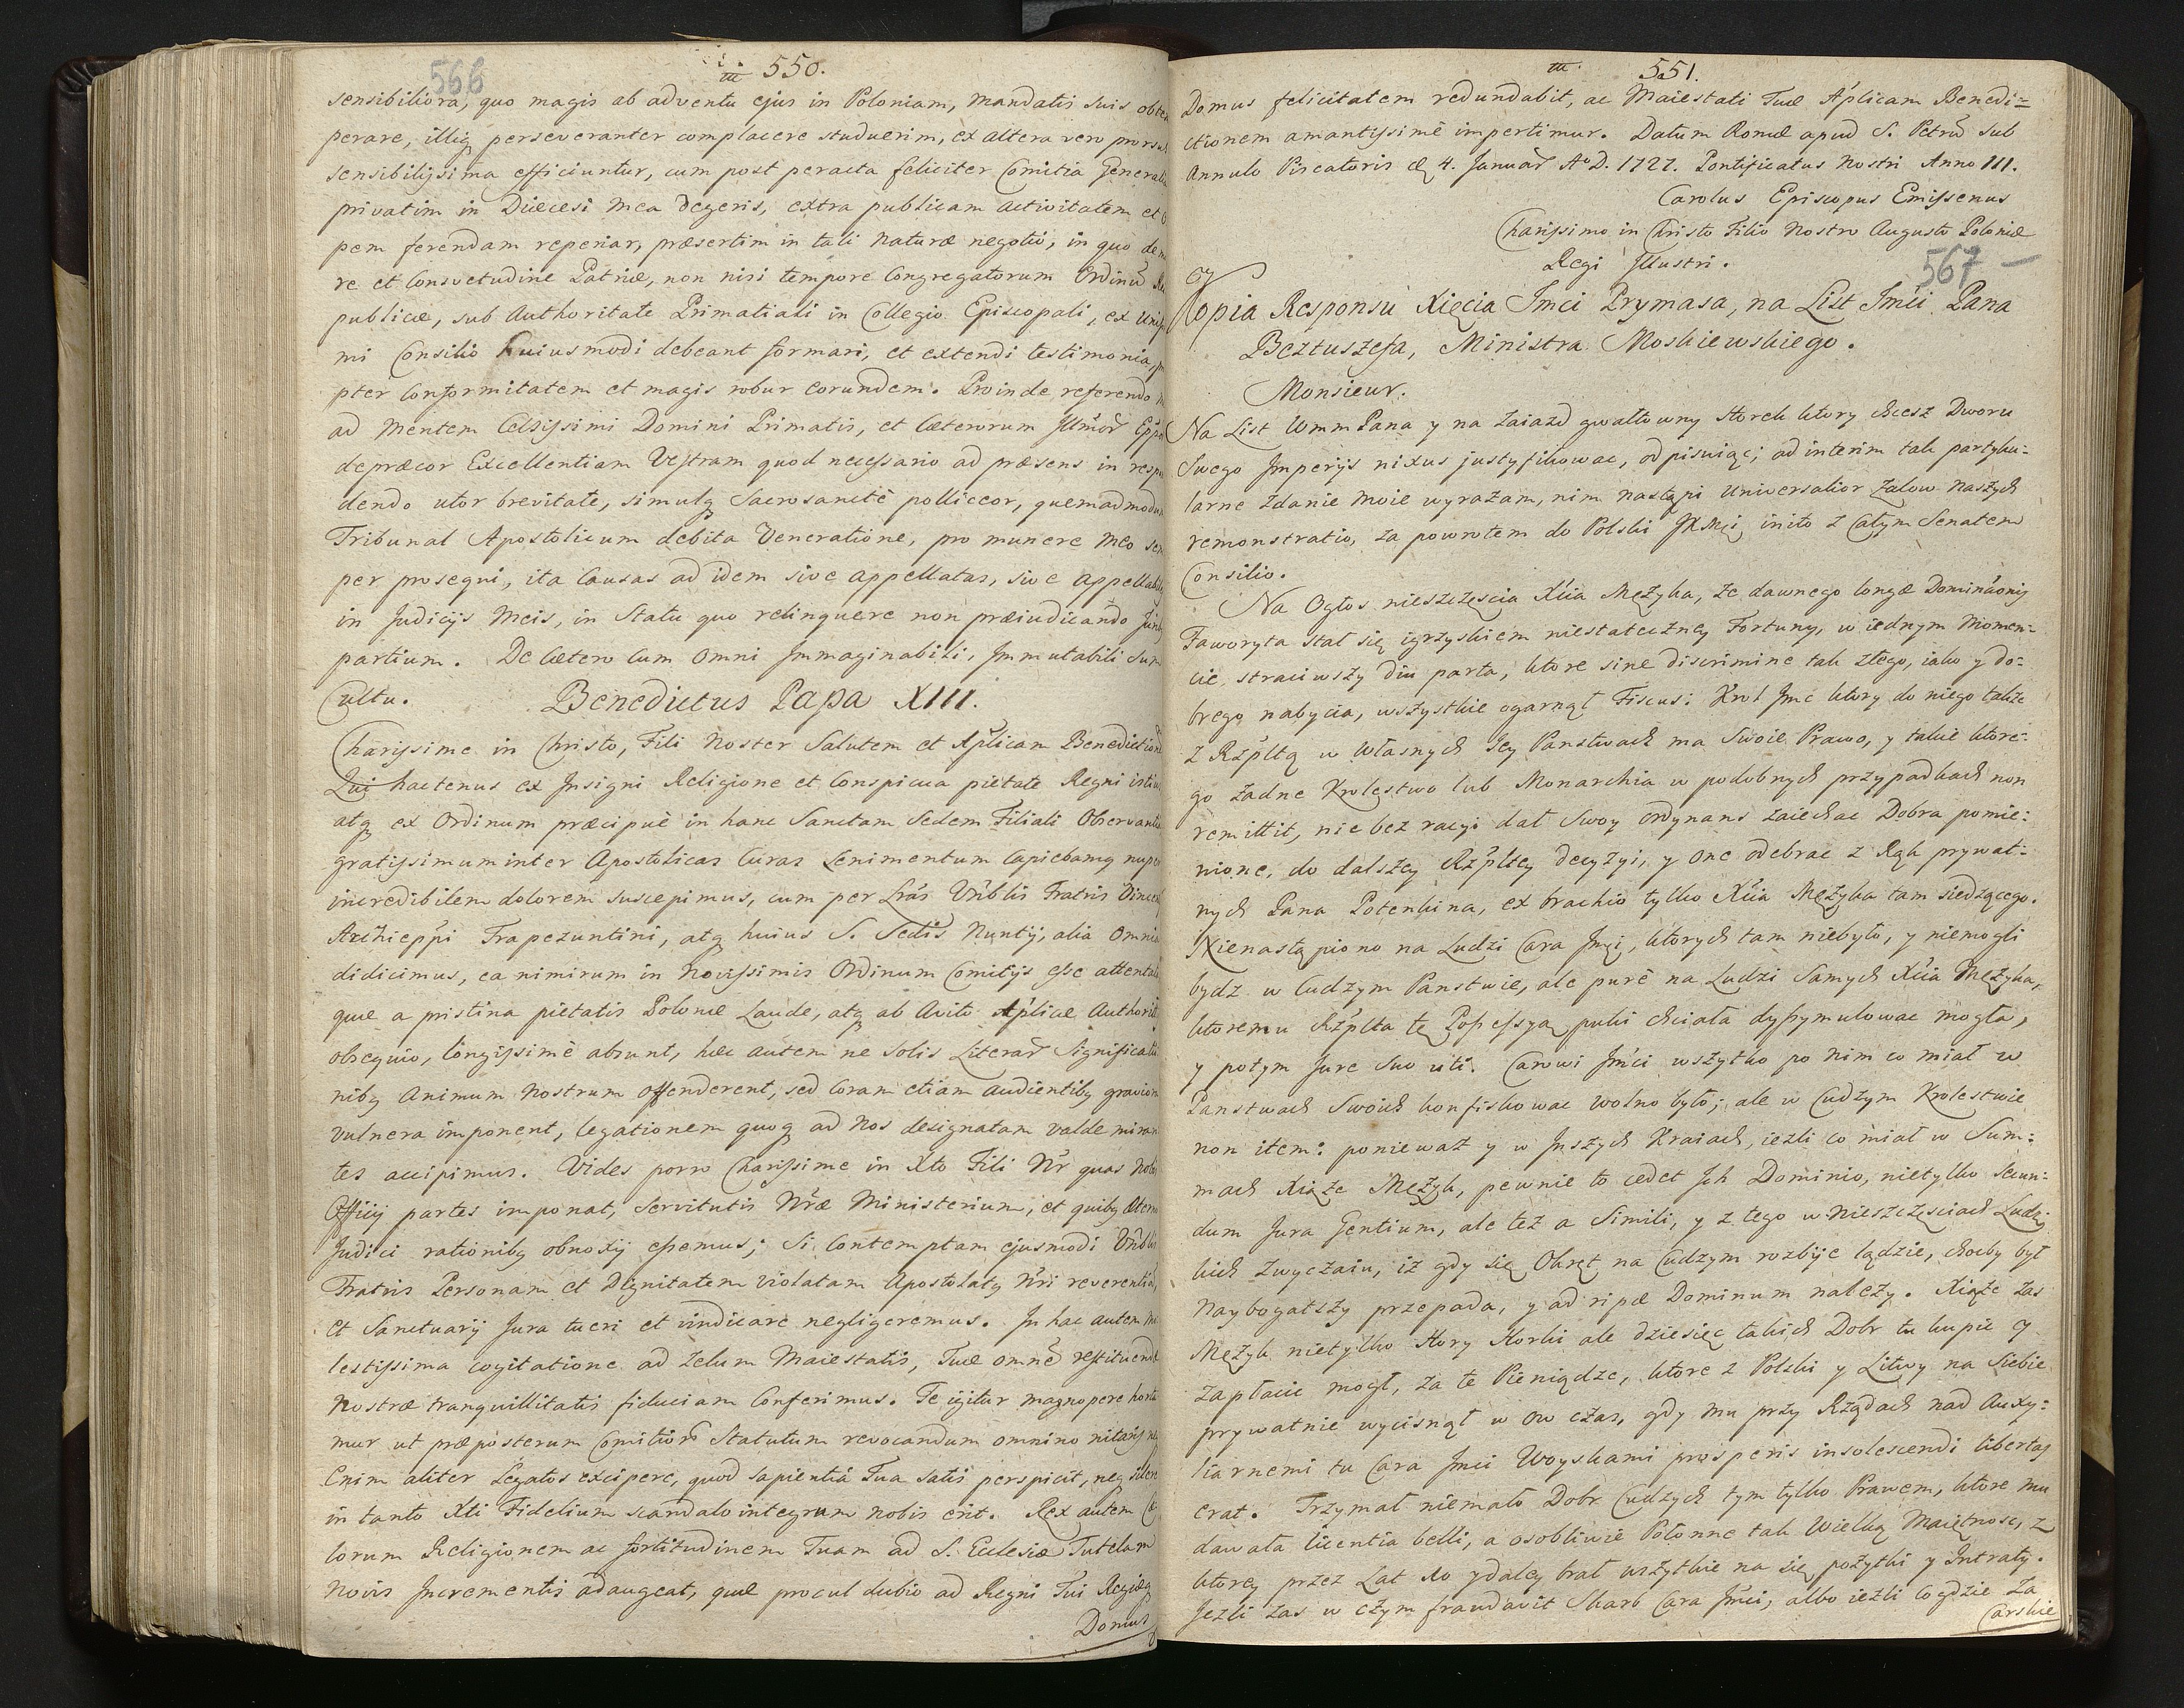 566
550.
sensibiliora, quo magis ab adventu ejus in Poloniam, Mandatis suis obtem
perare, illiq perseveranter complacere studuerim, ex altera vero prorsus
sensibilissima efficiuntur, cum post peracta feliciter Comitia Generalia
privatim in Diœcesi mea degens, extra publicam activitatem et o
pem ferendam reperiar, præsertim in tali naturæ negotio, in quo de m
re et Consvetudine Patriæ, non nisi tempore Congregatorum Ordinũ Re
publicæ, sub Authoritate Primatiali in Collegio Episcopali, ex Unifor
mi Consilio huiusmodi debeant formari, et extendi testimonia, p
pter Conformitatem et magis robur eorundem. Proinde referendo m
ad Mentem Celsissimi Domini Primatis, et Cæterorum Illmor Eppor
depræcor Excellentiam Vestram quod necessario ad præsens in respon
dendo utor brevitate, simulq Sacrosanctè polliceor, quemadmodum
Tribunal Apostolicum debita Veneratione, pro munere meo sem
per prosequi, ita Causas ad idem sive appellatas, sive appellabiles
in Judicijs Meis, in Statu quo relinquere non præiudicando Juribus
partium. De Cætero Cum Omni Immaginabili, Immutabili Sum
Cultu.
Benedictus Papa XIII.
Charissime in Christo, Fili Noster Salutem et Aplicam Benedictionẽ
Qui hactenus ex Insigni Religione et Conspicua pietate Regni istius
atq ex Ordinum præcipuè in hanc Sanctam Sedem Filiali Observantia
gratissimum inter Apostolicas Curas Lenimentum Capiebamq nuper
incredibilem dolorem suscepimus, cum per Lras Vnblis Fratris Vincenty
Archieppi Trapezuntini, atq huius S. Sedis Nuntij, alia Omnia
didicimus, ea nimirum in Novissimis Ordinum Comitijs esse attentata
quæ a pristina pietatis Polonæ Laude, atq ab Avito Aplicæ Authorit
obsequio, longissimè absunt, hæc autem ne solis Literar Significatio
nibq Animum Nostrum offenderent, sed Coram etiam audientibq graviora
vulnera imponent, legationem quoq ad Nos designatam valde miran
tes accipimus. Vides porro Charissime in Xto Fili Nr quas Nobis
Officij partes imponat, servitutis Nræ Ministerium, et quibq Æterno
Judici rationibq obnoxij essemus; si Contemptam ejusmodi Vnblis
Fratris Personam et Dignitatem violatam Apostolatq Nri reverentiã,
et Sanctuarij Jura tueri et vindicare negligeremus. In hac autem mo
lestissima cogitatione ad Zelum Maiestatis, Tuæ omnẽ restituendæ
Nostræ tranquillitatis fiduciam Conferimus. Te igitur magnopere horta
mur ut præposterum Comitiorũ Statutum revocandum omnino nitaris ne
Enim aliter Legatos excipere, quod sapientia Tua satis perspicit, neq silere
in tanto Xti Fidelium scandalo integrum Nobis erit. Rex autem Cæ
lorum Religionem ac fortitudinem Tuam ad S. Ecclesiæ Tutelam
Novis Incrementis adaugeat, quæ procul dubio ad Regni Tui Regiæq
Domus
551.
Domus felicitatem redundabit, ac Maiestati Tuæ Aplicam Benedi=
ctionem amantissimè impertimur. Datum Romæ apud S. Petrũ sub
Annulo Piscatoris 4. Januar Ao D. 1727. Pontificatus Nostri Anno III.
Carolus Episcopus Emissenus
Charissimo in Christo Filio Nostro Augusto Poloniæ
Regi Illustri.
567
Copia Responsu Xięcia Imci Prymasa, na List Imci Pana
Beztuszefa, Ministra Moskiewskiego.
Monsieur.
Na List Wmm Pana y na zaiazd gwałtowny Horek ktory chcesz Dworu
Swego Imperijs nixus justyfikowac, odpisuiąc; ad interim tak partyku=
larne zdanie moie wyrażam, nim nastąpi Universalior żalow naszych
remonstratio, za powrotem do Polski JKMci, inito z Całym Senatem
Consilio.
Na Ogłos nieszczęscia Xcia Mężyka, że dawnego longæ Dominaonij
Faworyta stał się igrzyskiem niestateczney Fortuny, w iednym Momen=
cie straciwszy diu parta, ktore sine discrimine tak złego, iako y do=
brego nabycia, wszystkie ogarnął Fiscus: Krol Jmc ktory do niego także
z Rzpltą w własnych Jey Panstwach ma Swoie Prawo, y takie ktore=
go żadne Krolestwo lub Monarchia w podobnych przypadkach non
remittit, nie bez racyi dał Swoy Ordynans zaiechac Dobra pomie=
nione, do dalszey Rzpltey decyzyi, y one odebrac z Rąk prywat=
nych Pana Potemkina, ex brachio tylko Xcia Mężyka tam siedzącego.
Nienastąpiono na Ludzi Cara Jmci, ktorych tam niebyło, y niemogli
bydz w Cudzym Panstwie, ale purè na Ludzi Samych Xcia Mężyka,
ktoremu Rzplta tę Possessyą puki chciała dyssymulowac mogła,
y potym Jure Suo uti. Carowi Jmci wszytko po nim co miał w
Panstwach Swoich konfiskowac wolno było; ale w Cudzym Krolestwie
non item: ponieważ y w Inszych Kraiach, iezli co miał w Sum=
mach Xiąże Mężyk, pewnie to cedet Ich Dominio, nietylko Secun=
dum Jura Gentium, ale też a Simili, y z tego w Nieszczęsciach Ludz=
kich zwyczaiu, iż gdy się Okręt na Cudzym rozbije lądzie, choćby był
Naybogatszy przepada, y ad ripæ Dominum należy. Xiąże zas
Mężyk nietylko Hory Horki ale dziesięc takich Dobr tu kupic y
zapłacic mogł, za te Pieniądze, ktore z Polski y Litwy na Siebie
prywatnie wycisnął w ow czas, gdy mu przy Rządach nad Auxy=
liarnemi tu Cara Jmci Woyskami prosperis insolescendi libertas
erat. Trzymał niemało Dobr Cudzych tym tylko Prawem, ktore mu
dawała licentia belli, a osobliwie Połonne tak Wielką Maiętnosc, z
ktorey przez Lat Xo y daley brał wszytkie na się pożytki y Intraty.
Jezli zas w czym fraudavit Skarb Cara Jmci, albo iezli co gdzie za
Carskie